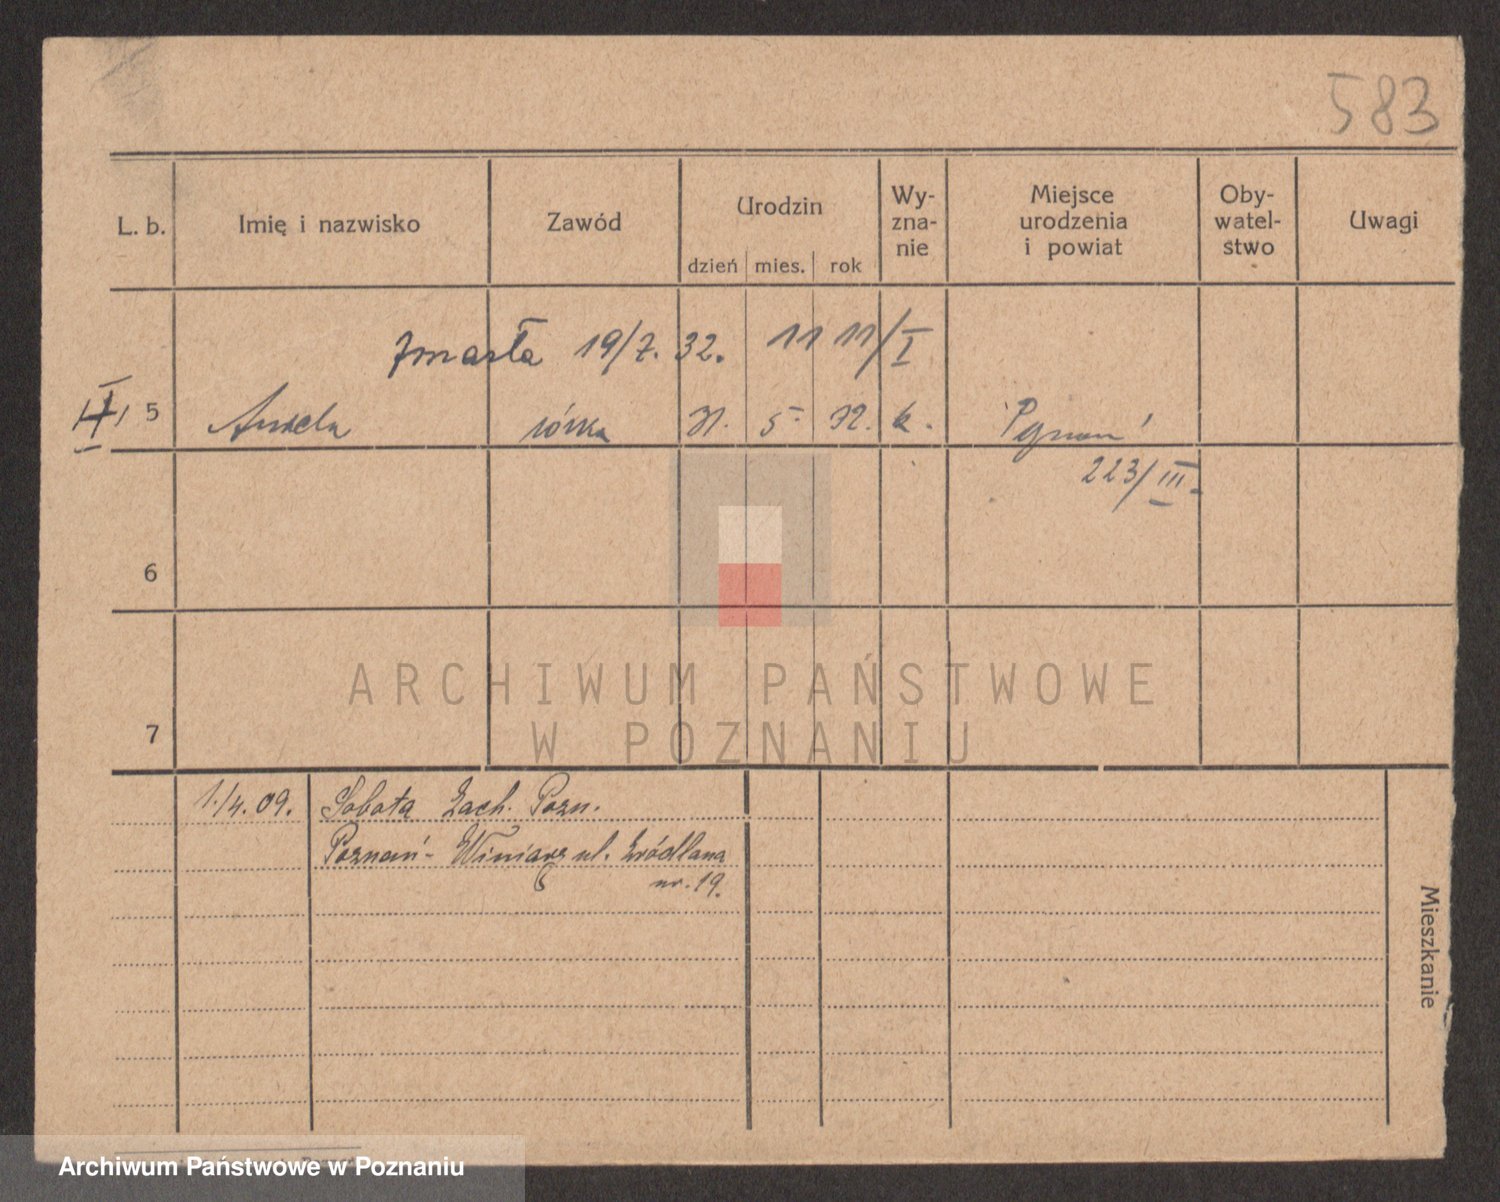 583
L. b. Imię i nazwisko Zawód Urodzin dzień mies. rok Wy-zna-nie Miejsce urodzenia i powiat Oby-watel-stwo Uwagi
zmarła 19/7. 32. 11 11/I
5 Aniela córka 31. 5. 32. k. Poznań
223/III
6
7
ARCHIWUM PAŃSTWOWE
W POZNANIU
1./4. 09. Sobota Zach. Pozn.
Poznań - Winiary ul. Źródlana
nr. 19.
Mieszkanie
Archiwum Państwowe w Poznaniu